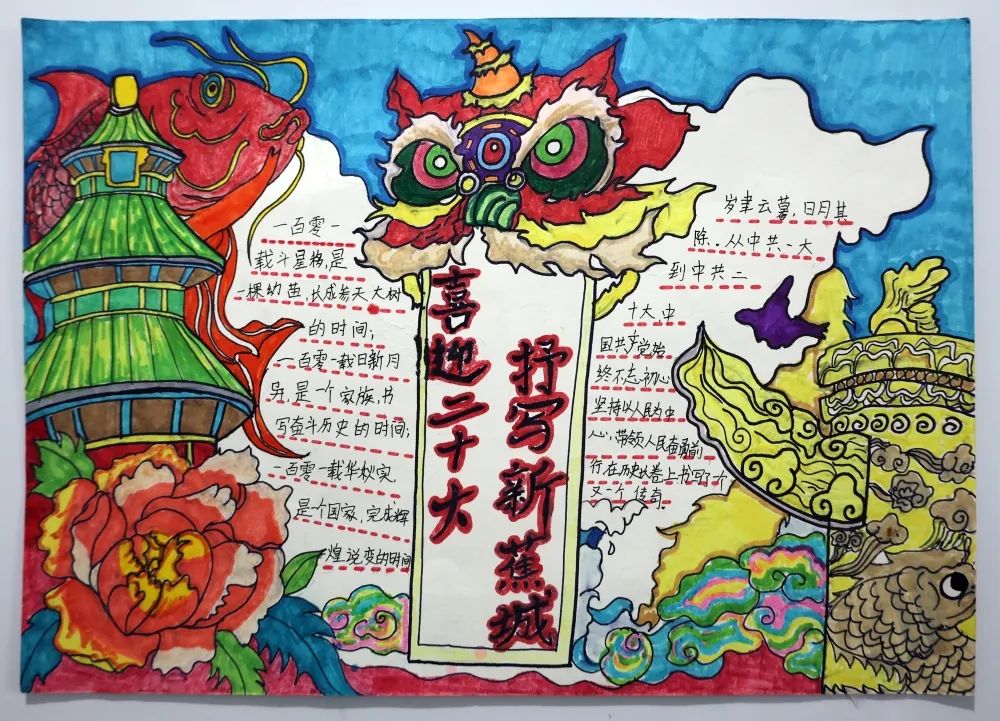 一百零一
载斗星移,是
一棵幼苗,长成参天大树
的时间;
一百零一载日新月
异,是一个家族,书
写奋斗历史的时间;
一百零一载华秋实
是个国家,完成辉
煌说变的时间
喜迎二十大
抒写新蕉城
岁聿云暮,日月其
除.从中共一大
到中共二
十大,中
国共产党始
终不忘初心
坚持以人民为中
心,带领人民奋勇前
行,在历史长卷上书写了个
又一个传奇.